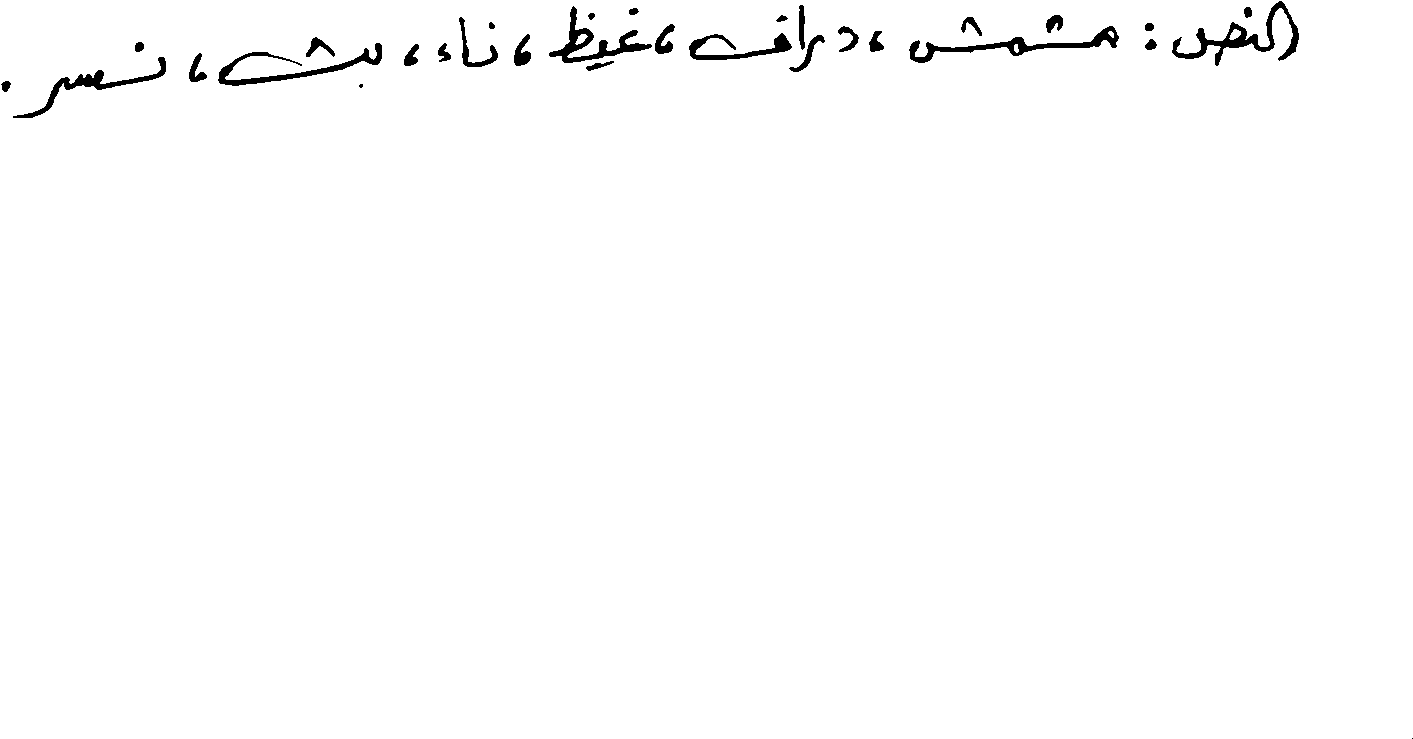 النص: مشمش، دراق، غيظ، ناء، بشے، نسر.